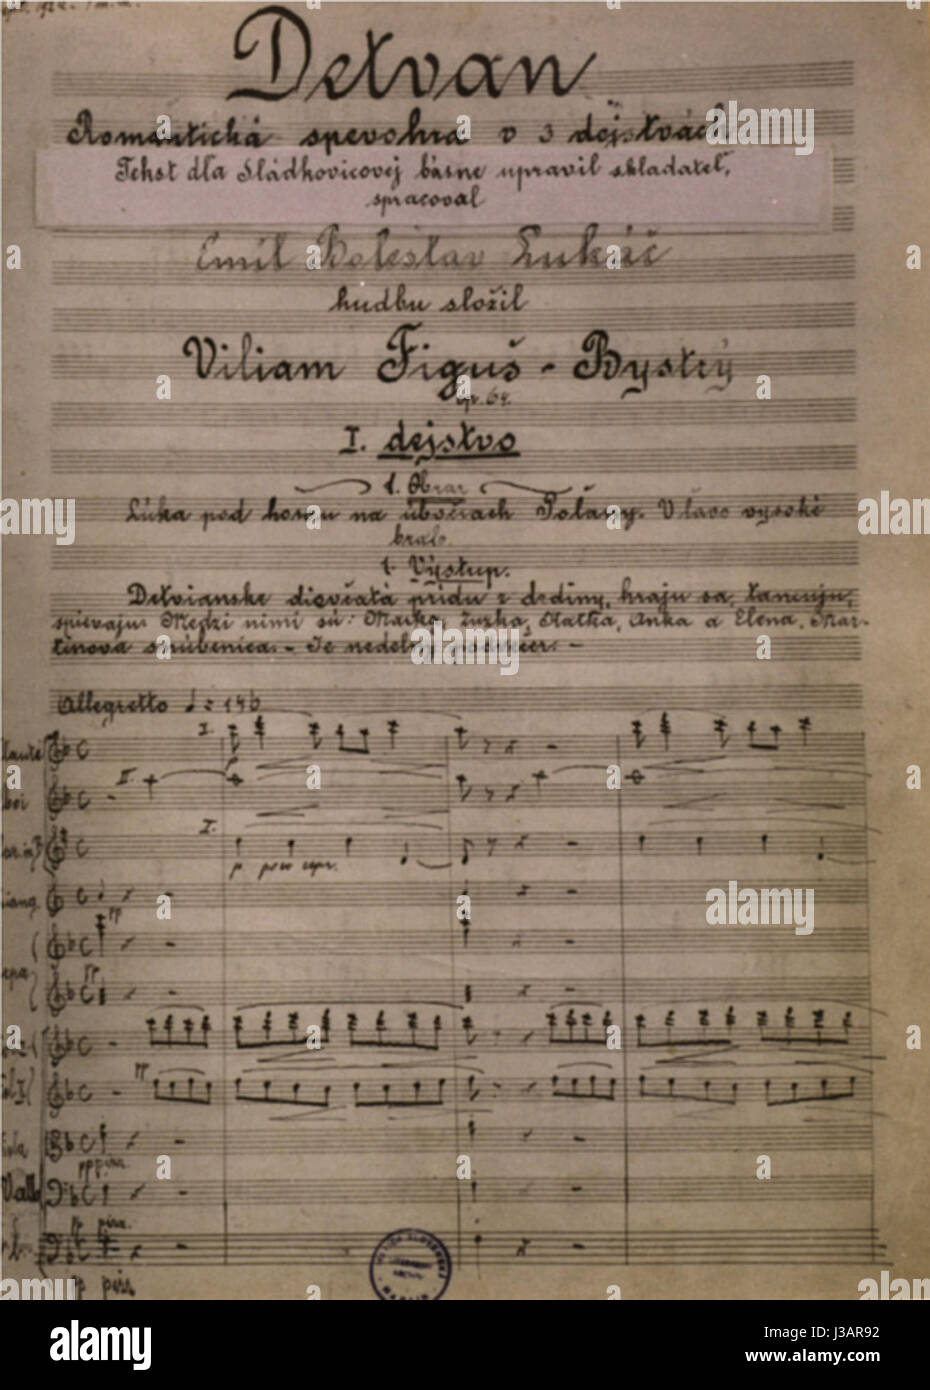 Detvan
Romantická spevohra v 3 dejstvách
Tekst dľa Sládkovicovej básne upravil skladateľ,
spracoval
Emil Boleslav Lukáč
hudbu složil
Viliam Figuš - Bystrý
op. 64.
I. dejstvo
1. Obraz
Lúka pod horou na úbočiach Poľany. V ľavo vysoké
bralo.
1. Výstup.
Detvianske dievčatá prídu z dediny, hrajú sa, tancujú,
spievajú. Medzi nimi sú: Marka, Zuzka, Katka, Anka a Elena, Mar-
tinova snúbenica. - Je nedeľný podvečer. -
Allegretto ♩ = 146
I.
II.
I.
p poco espr.
pp
pp
pp
pp pizz.
Vcllo
pizz.
pizz.
alamy stock photo
J3AR92
www.alamy.com